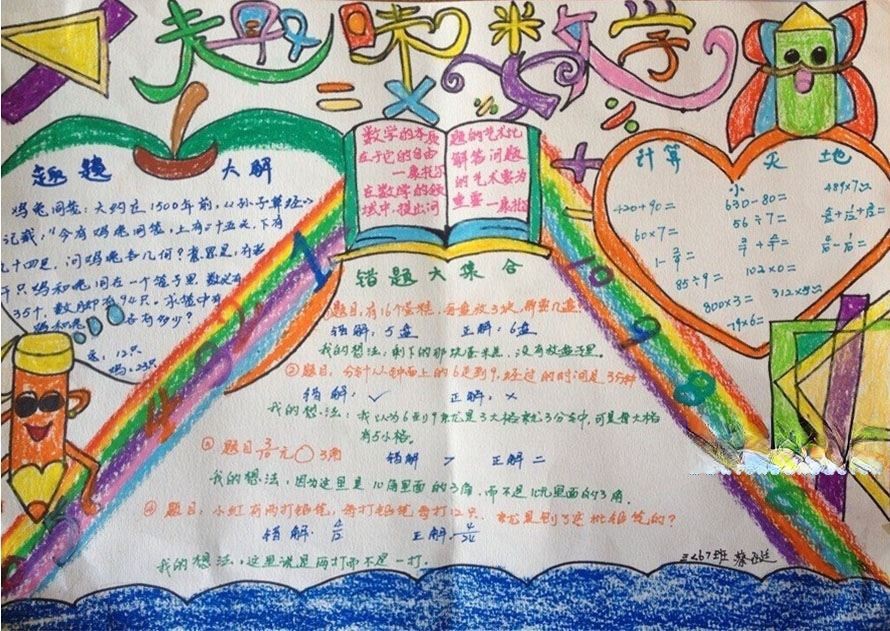 趣味数学
= × %
÷
+
-
趣题大解
鸡兔同笼:大约在1500年前,《孙子算经》
记载,“今有鸡兔同笼,上有三十五头,下有
九十四足,问鸡兔各几何?意思是,有若
干只鸡和兔同在一个笼子里,数头有
35个,数脚有94只,求笼中有
鸡和兔各有多少?
兔:12只
鸡:23只
数学的本质
在于它的自由
—康托尔
在数学的领
域中,提出问
题的艺术比
解答问题
的艺术更为
重要—康托尔
计算小天地
420+90=
630-80=
489×7≈
60×7=
56÷7=
85÷9=
102×0=
800×3=
312×5≈
79×6=
1 2 3 4
10 9 8
错题大集合
①题目,有16个蛋糕,每盘放3块,那要几盘?
错解:5盘 正解:6盘
我的想法:剩下的那块蛋糕,没有放盘子里。
②题目,分针从钟面上的6走到9,经过的时间是3分钟
错解:✓ 正解:×
我的想法:我以为6到9就是3大格就3分钟,可是每大格
有5小格。
③题目 3/10元○3角
错解 > 正解 =
我的想法,因为这里是10角里面的3角,而不是10元里面的3角。
④题目,小红有两打铅笔,每打铅笔每打12只,
错解: 正解:
我的想法,这里说是两打而不是一打。
三<6>班 蔡